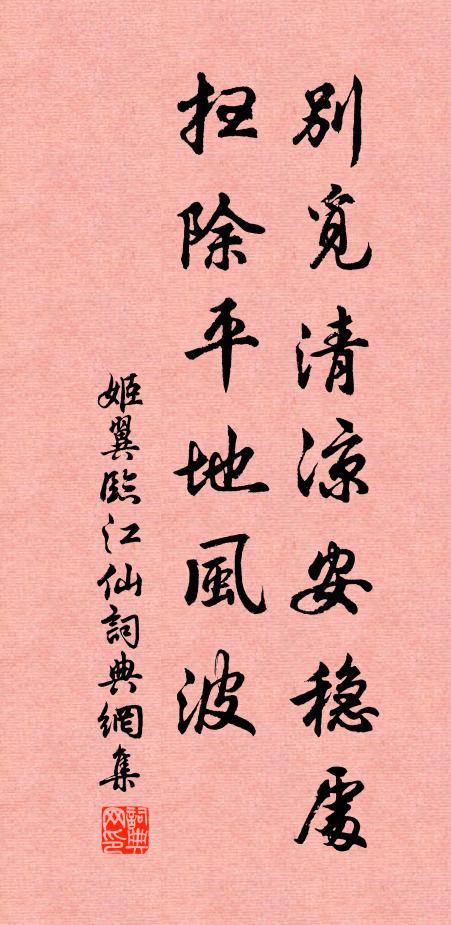 別覓清涼安穩處
扫除平地風波
姬翼臨江仙詞典網集
詞典网印